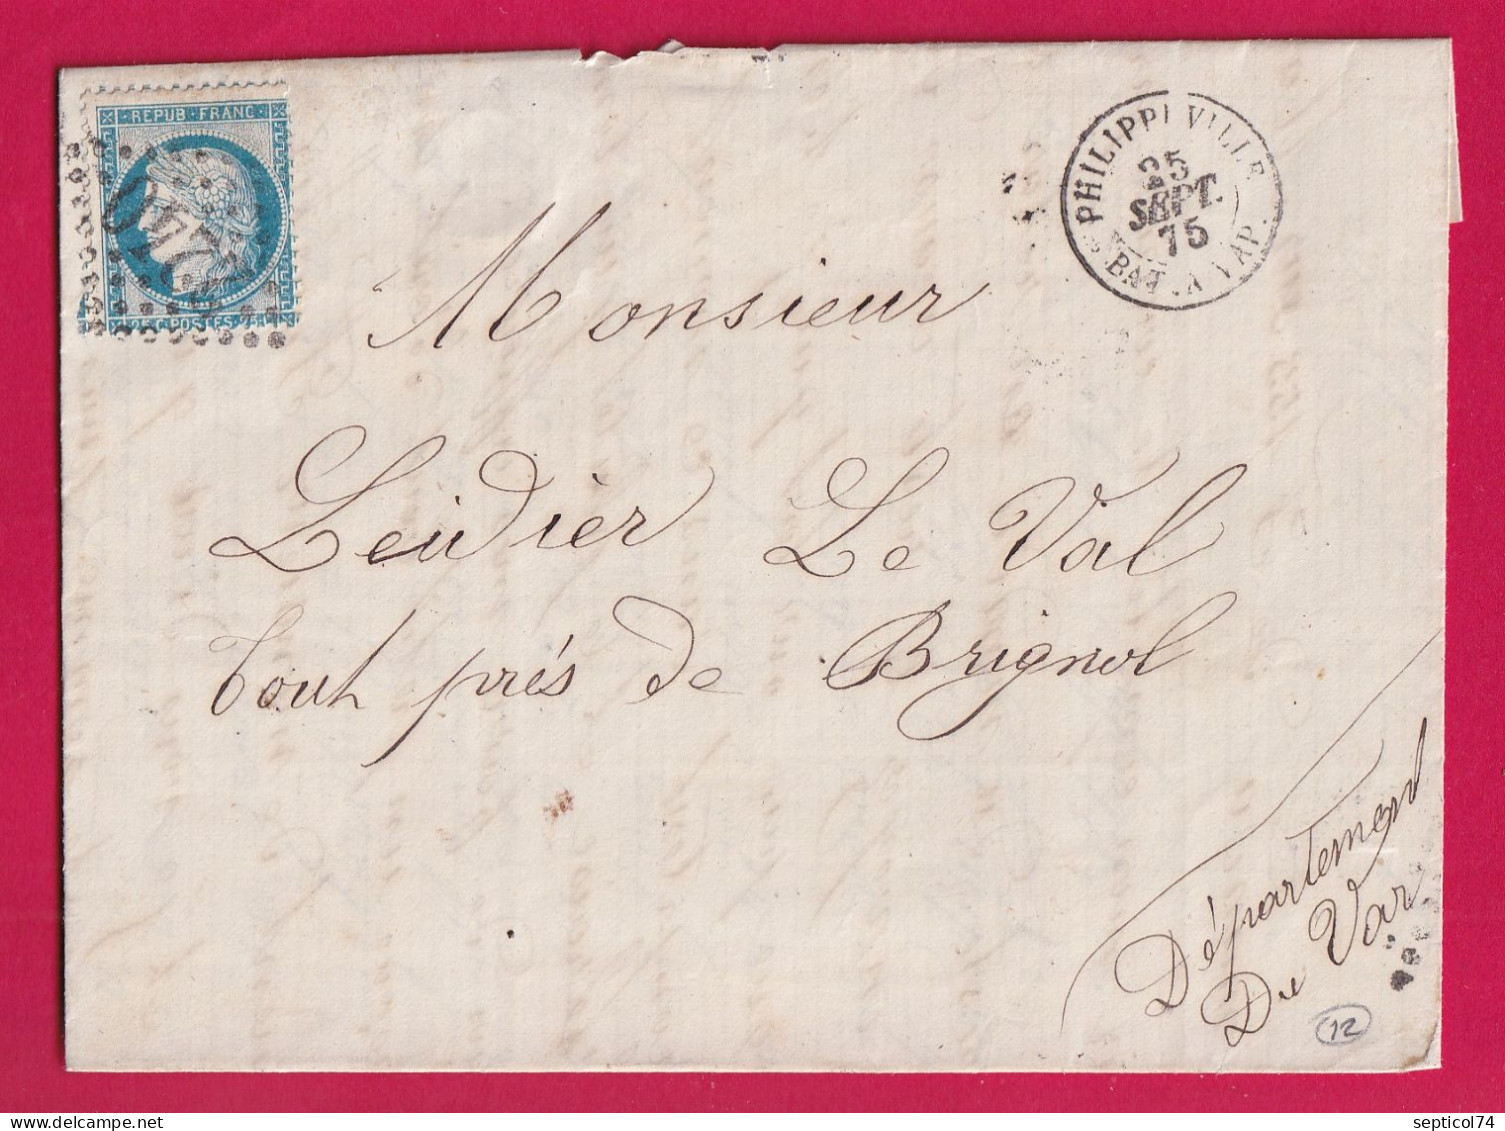 REPUB·FRANC·
2240
POSTES
PHILIPPEVILLE
25
SEPT.
75
BAT. A VAP.
Monsieur
Leidier Le Val
Tout prés de Brignol
Département
Du Var
12
septicol74